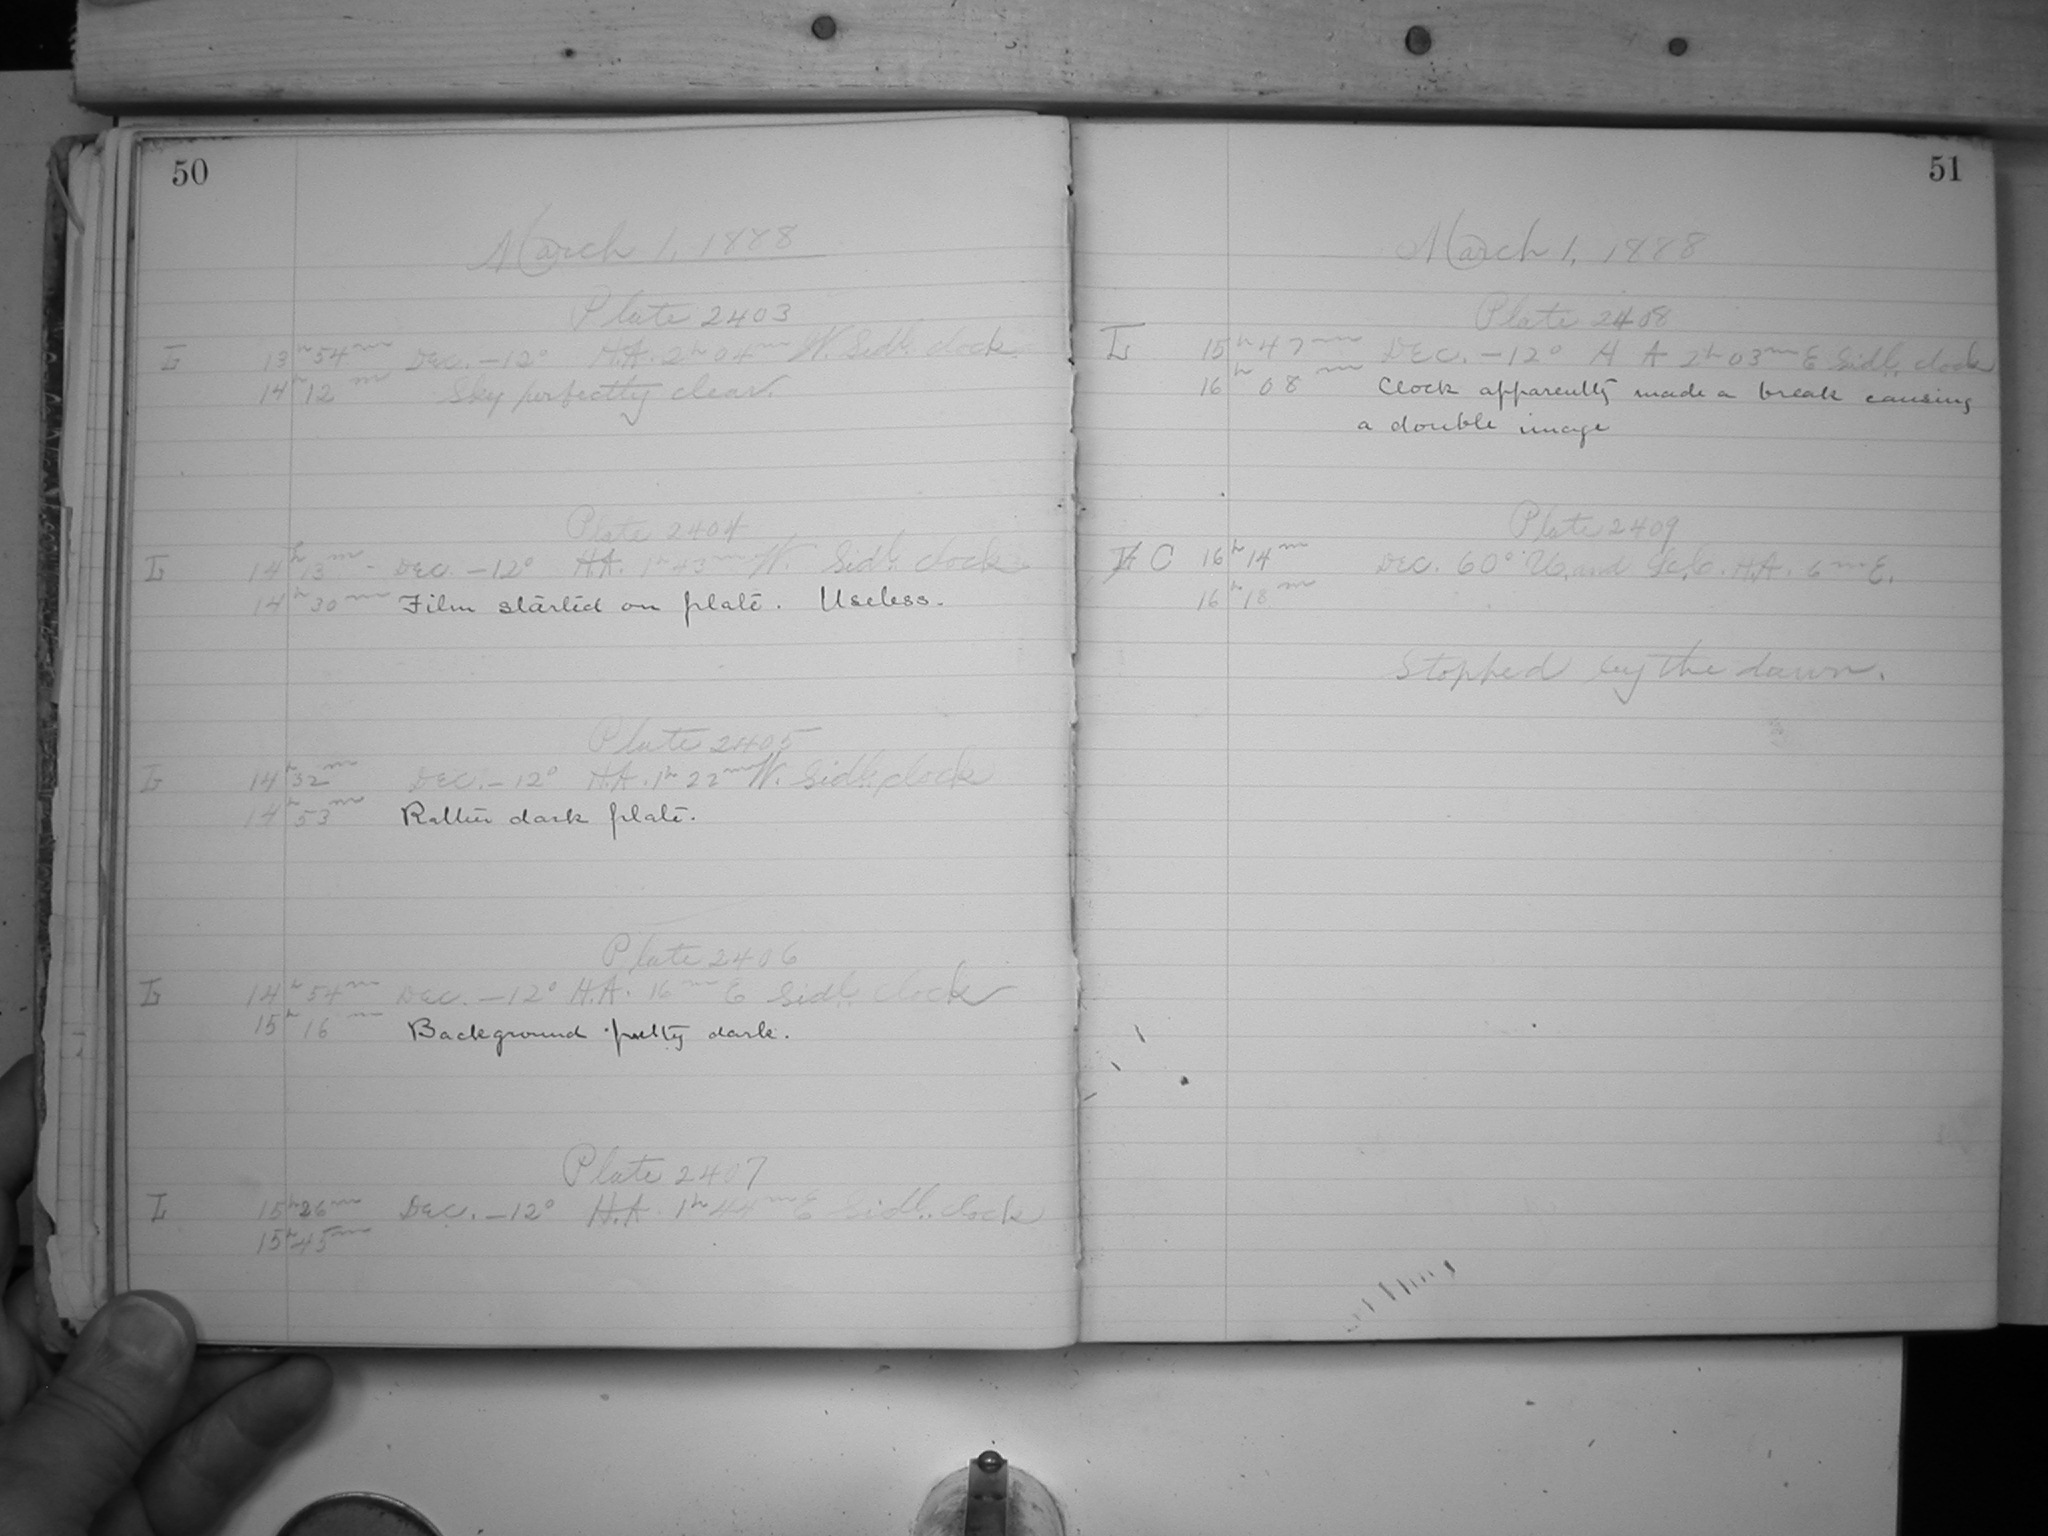 50
March 1, 1888
Plate 2403
L 13h 54m Dec. -12° H.A. 2h 04m W. Sidl. clock
14h 12m Sky perfectly clear.
Plate 2404
L 14h 13m - Dec. -12° H.A. 1h 43m W. Sidl. clock
14h 30m Film started on plate. Useless.
Plate 2405
L 14h 32m Dec. -12° H.A. 1h 22m W. Sidl. clock
14h 53m Rather dark plate.
Plate 2406
L 14h 54m Dec. -12° H.A. 16m E Sidl. clock
15h 16m Background pretty dark.
Plate 2407
L 15h 26m Dec. -12° H.A. 1h 44m E Sidl. clock
15h 45m
51
March 1, 1888
Plate 2408
L 15h 47m Dec. -12° H A 2h 03m E Sidl. clock
16h 08m Clock apparently made a break causing
a double image
Plate 2409
C 16h 14m Dec. 60° U. and L.C. H.A. 6m E.
16h 18m
Stopped by the dawn.